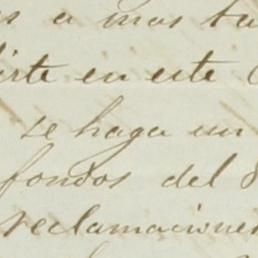 a mas ta
irte en este
se haga un
fondos del
reclamaciones